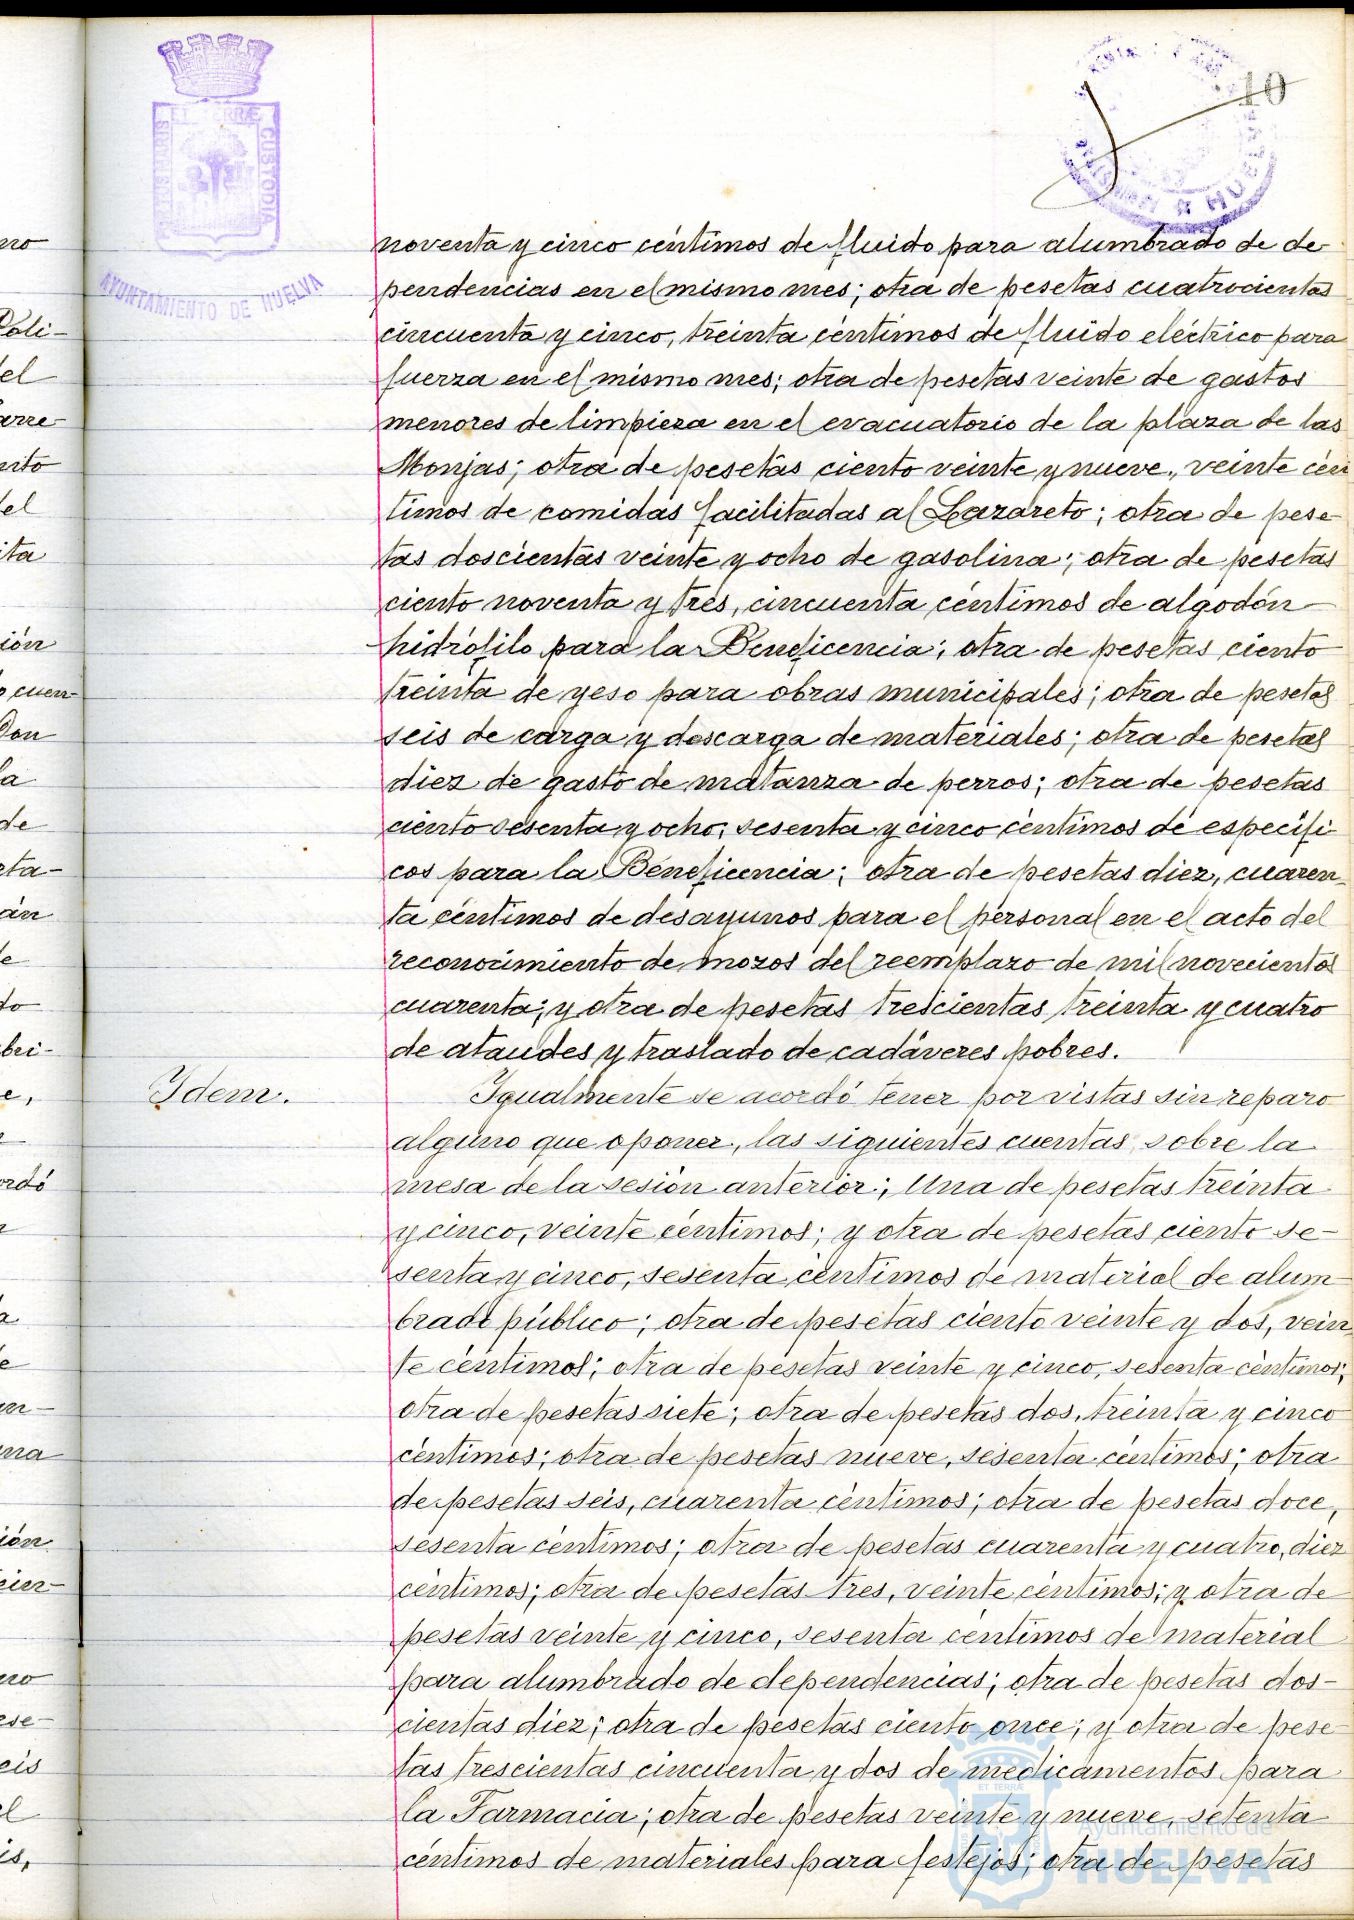 10
PORTUS MARIS ET TERRÆ CUSTODIA
AYUNTAMIENTO DE HUELVA
HUELVA
noventa y cinco céntimos de fluido para alumbrado de de-
pendencias en el mismo mes; otra de pesetas cuatrocientas
cincuenta y cinco, treinta céntimos de fluido eléctrico para
fuerza en el mismo mes; otra de pesetas veinte de gastos
menores de limpieza en el evacuatorio de la plaza de las
Monjas; otra de pesetas ciento veinte y nueve, veinte cén
timos de comidas facilitadas al Lazareto; otra de pese-
tas doscientas veinte y ocho de gasolina; otra de pesetas
ciento noventa y tres, cincuenta céntimos de algodón
hidrófilo para la Beneficencia; otra de pesetas ciento
treinta de yeso para obras municipales; otra de pesetas
seis de carga y descarga de materiales; otra de pesetas
diez de gasto de matanza de perros; otra de pesetas
ciento sesenta y ocho, sesenta y cinco céntimos de específi-
cos para la Beneficencia; otra de pesetas diez, cuaren-
ta céntimos de desayunos para el personal en el acto del
reconocimiento de mozos del reemplazo de mil novecientos
cuarenta; y otra de pesetas trescientas treinta y cuatro
de ataudes y traslado de cadáveres pobres.
Ydem.
Igualmente se acordó tener por vistas sin reparo
alguno que oponer, las siguientes cuentas sobre la
mesa de la sesión anterior; Una de pesetas treinta
y cinco, veinte céntimos; y otra de pesetas ciento se-
senta y cinco, sesenta céntimos de material de alum-
brado público; otra de pesetas ciento veinte y dos, vein
te céntimos; otra de pesetas veinte y cinco, sesenta céntimos;
otra de pesetas siete; otra de pesetas dos, treinta y cinco
céntimos; otra de pesetas nueve, sesenta céntimos; otra
de pesetas seis, cuarenta céntimos; otra de pesetas doce,
sesenta céntimos; otra de pesetas cuarenta y cuatro, diez
céntimos; otra de pesetas tres, veinte céntimos; y otra de
pesetas veinte y cinco, sesenta céntimos de material
para alumbrado de dependencias; otra de pesetas dos-
cientas diez; otra de pesetas ciento once; y otra de pese-
tas trescientas cincuenta y dos de medicamentos para
la Farmacia; otra de pesetas veinte y nueve, setenta
céntimos de materiales para festejos; otra de pesetas
Ayuntamiento de
HUELVA